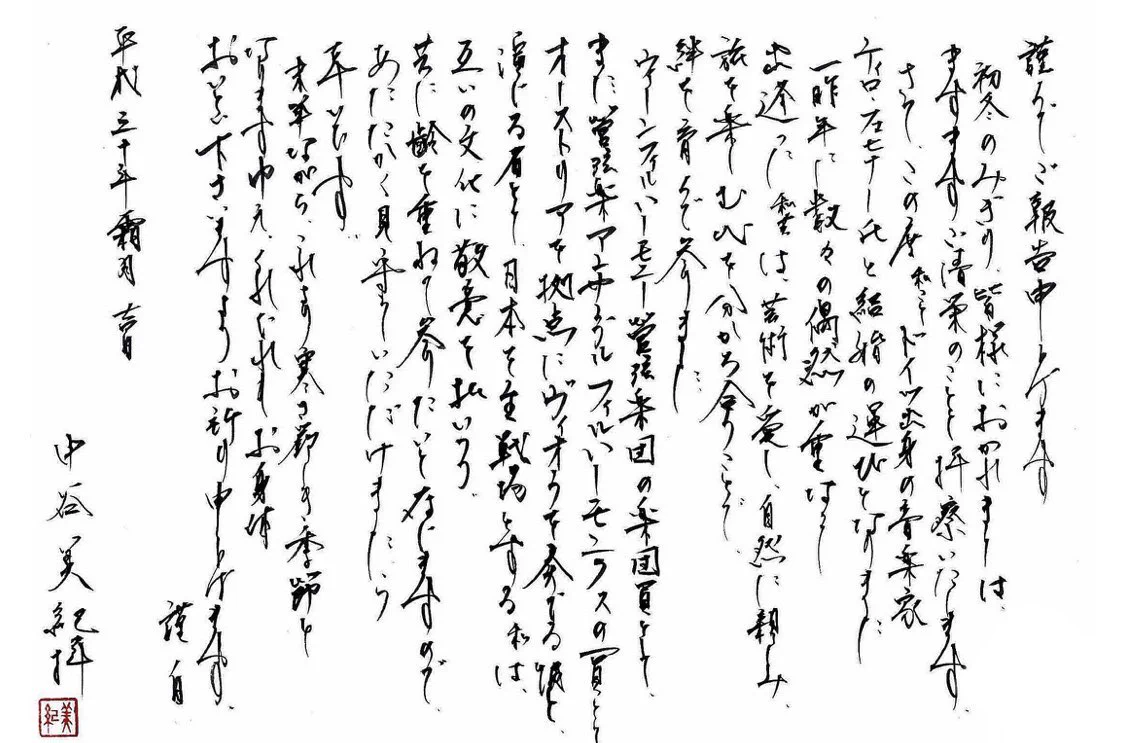 謹んでご報告申し上げます
初冬のみぎり、皆様におかれましては、
ますますご清栄のことと拝察いたします。
さて、この度私ことドイツ出身の音楽家
ティロ・フェヒナー氏と結婚の運びとなりました
一昨年に数々の偶然が重なって
出逢った私共は、芸術を愛し、自然に親しみ、
旅を楽しむ心を分かち合うことで、
絆を育んで参りました。
ウィーンフィルハーモニー管弦楽団の楽団員として、
また管弦楽アンサンブルフィルハーモニクスの一員として
オーストリアを拠点にヴィオラを奏でる彼と、
演じる者として、日本を主戦場とする私は、
互いの文化に敬意を払いつつ、
共に齢を重ねて参りたいと存じますので
あたたかく見守っていただけましたら
幸いです。
末筆ながら、これより寒さ厳しき季節と
なりますゆえ、くれぐれもお身体
おいとい下さいますようお祈り申し上げます。
謹白
平成三十年霜月吉日
中谷美紀拝
美紀